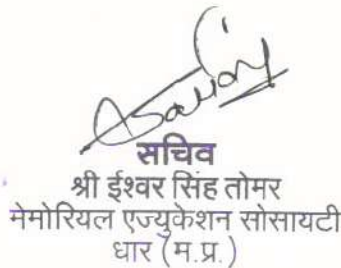 सचिव
श्री ईश्वर सिंह तोमर
मेमोरियल एज्युकेशन सोसायटी
धार (म.प्र.)